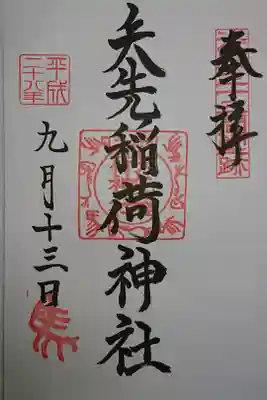 奉拝
矢先稲荷神社
平成
二十八年
九月十三日
馬